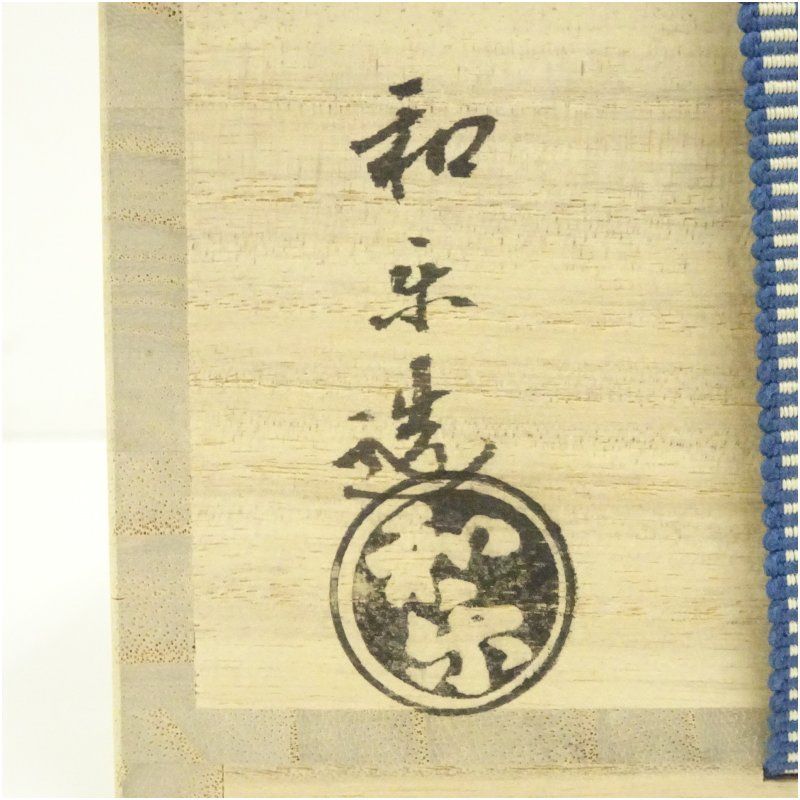 和楽造
和楽